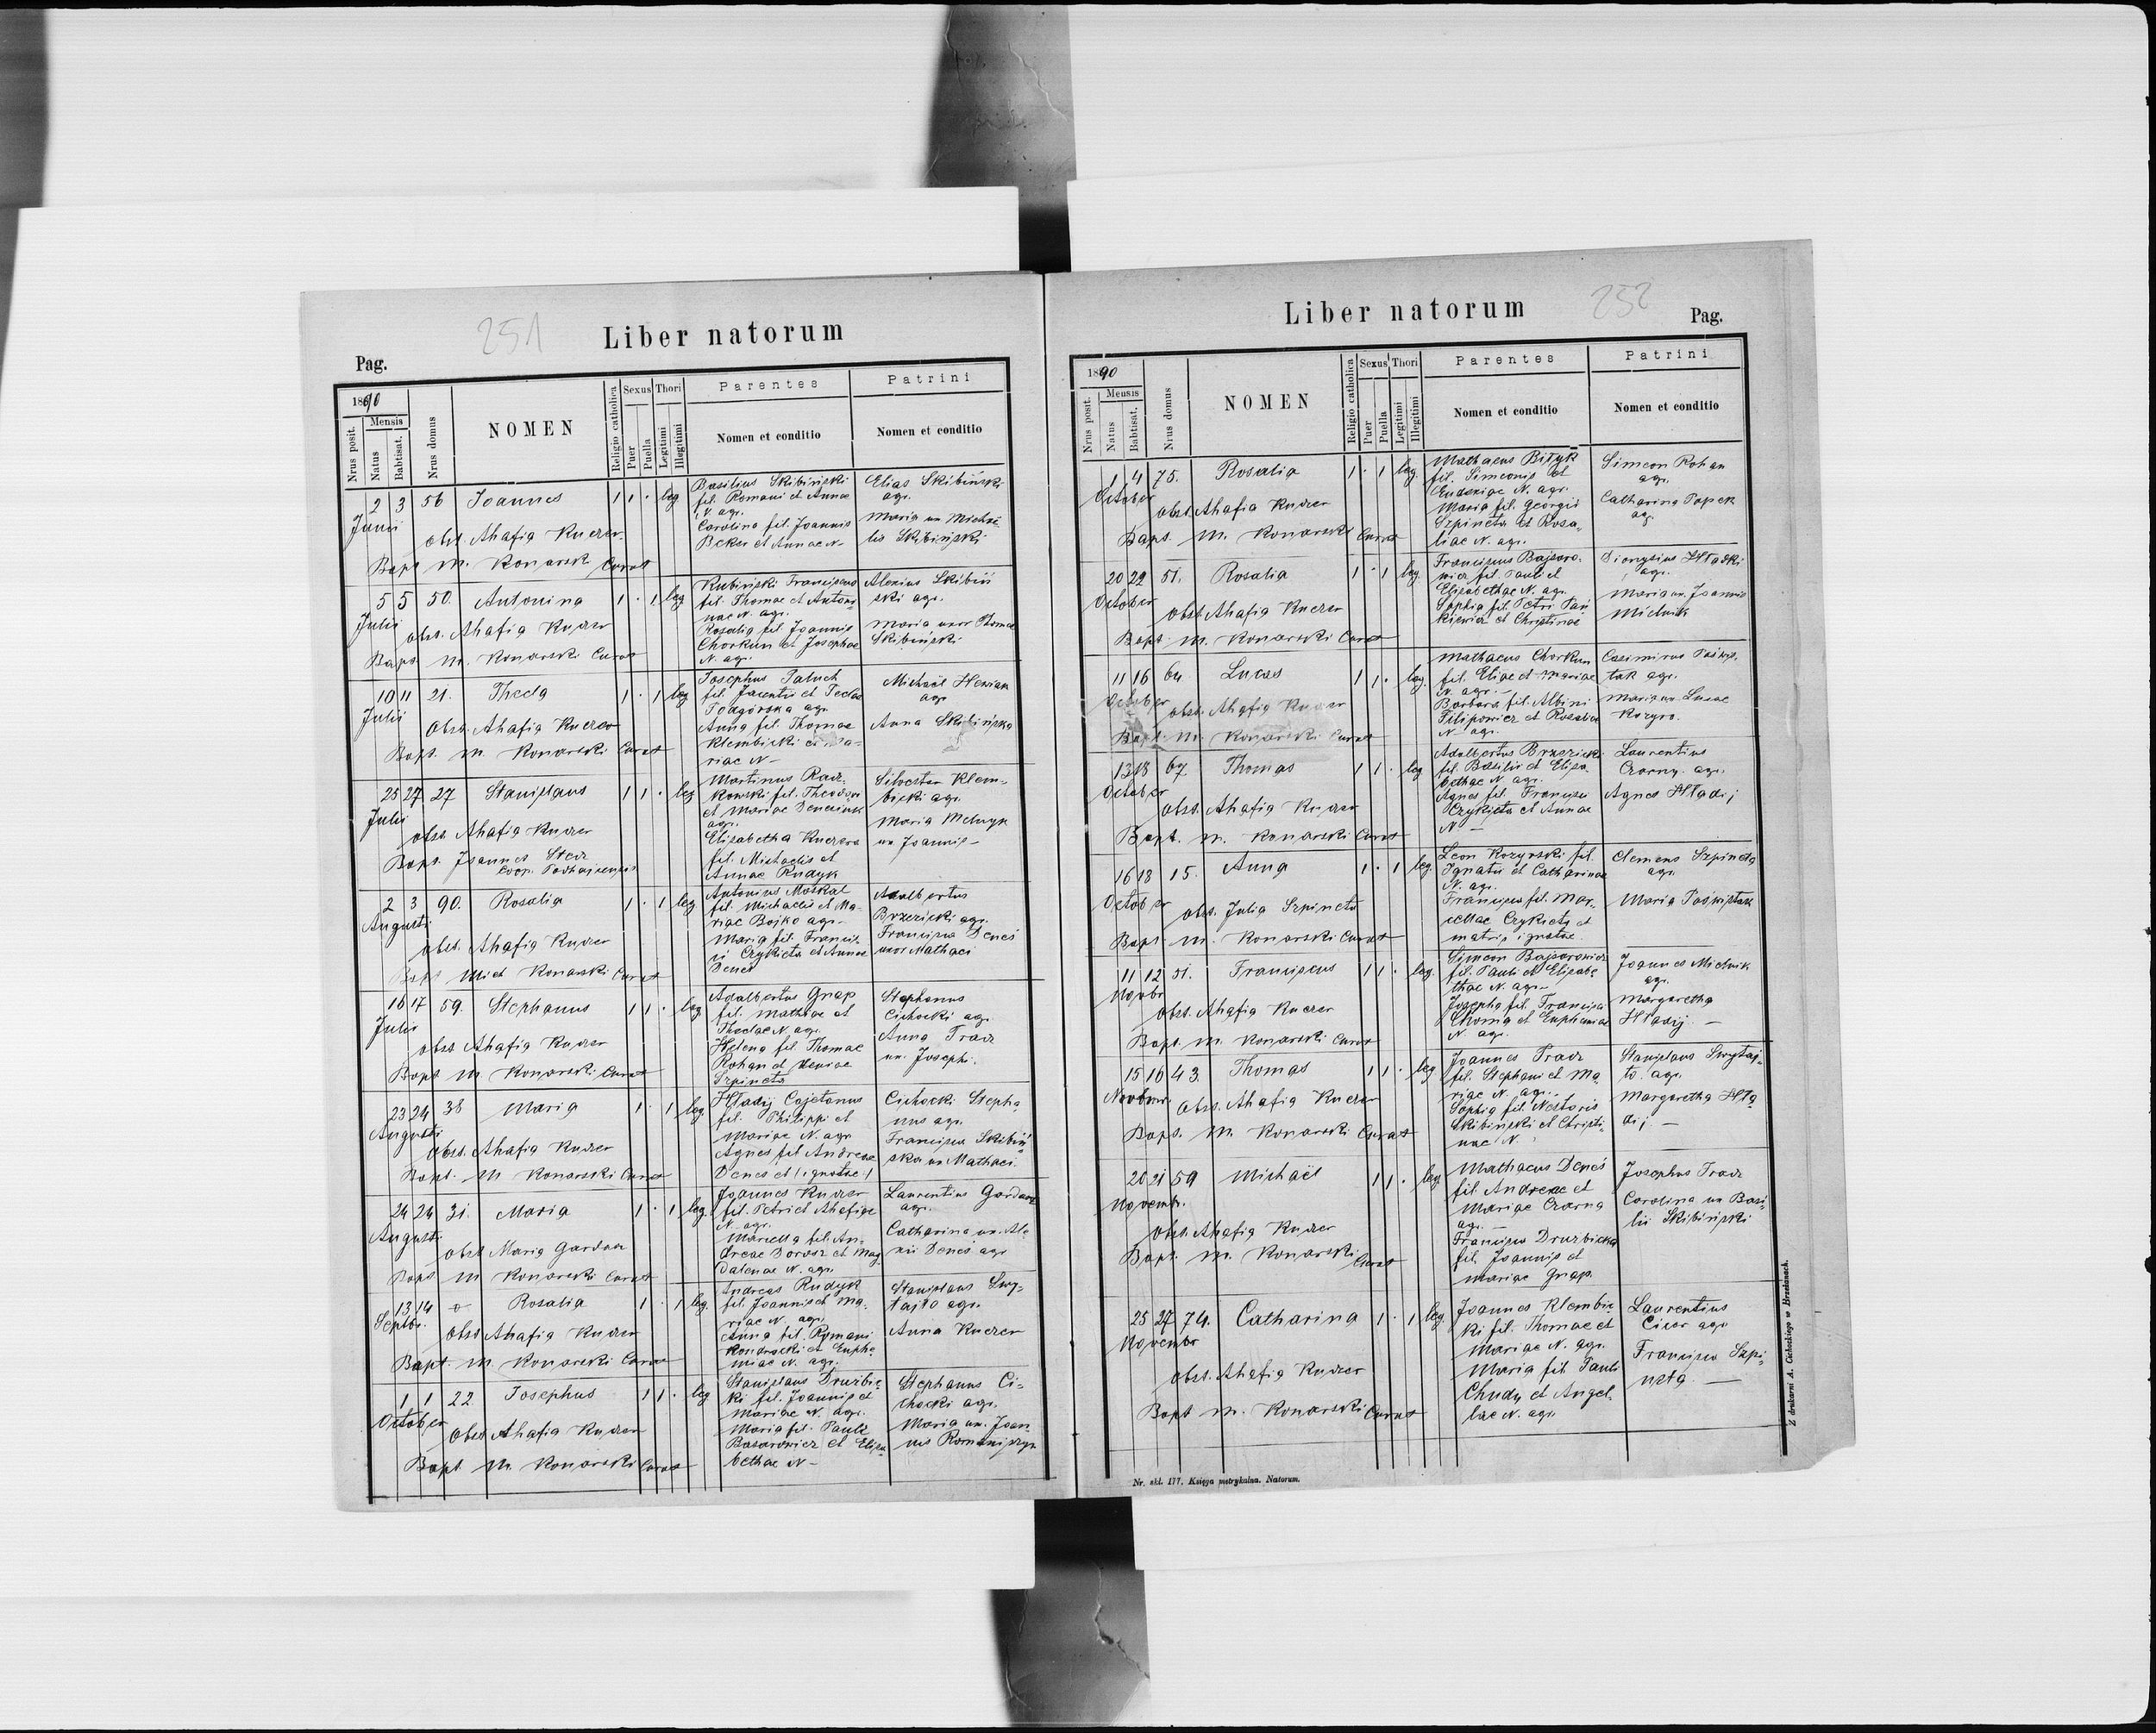 251
Liber natorum
Pag.
1890
Nrus posit.
Mensis
Natus
Babtisat.
Nrus domus
NOMEN
Religio catholica
Sexus
Puer
Puella
Thori
Legitimi
Illegitimi
Parentes
Nomen et conditio
Patrini
Nomen et conditio
2 3 56 Joannes 1 1 · leg
Junii
obst. Ahafia Kuczer
Bapt M. Konarski Curat
Basilius Skibiński
fil. Romani et Annae
N. agr.
Carolina fil. Joannis
Beker et Annae N-
Elias Skibiński
agr.
Maria ux Michaë-
lis Skibiński
5 5 50. Antonina 1 · 1 leg
Julii
obst. Ahafia Kuczer
Bapt M. Konarski Curat
Rubiński Franciscus
fil. Thomae et Antoni
nae N. agr.
Rosalia fil Joannis
Chorkun et Josephae
N. agr.
Alexius Skibiń
ski agr.
Maria uxor Thomae
Skibiński
10 11 21. Thecla 1 · 1 leg
Julii
Obst. Ahafia Kuczer
Bapt. M. Konarski Curat
Josephus Paluch
fil. Jacentii et Teclae
Podgórska agr
Anna fil. Thomae
Klembicki et Ma-
riae N-
Michaël Hewian
agr
Anna Skibińska
25 27 27 Stanislaus 1 1 · leg
Julii
obst Ahafia Kuczer
Bapt. Joannes Stec
Coop. Podhajcensis
Martinus Racz-
kowski fil. Theodori
et Mariae Denesiuk
agr.
Elisabetha Kuczera
fil. Michaelis et
Annae Rudyk
Silvester Klem-
bicki agr.
Maria Melnyk
ux Joannis-
2 3 90. Rosalia 1 · 1 leg
Augusti
obst. Ahafia Kuczer
Bapt Mich Konarski Curat
Antonius Moskal
fil. Michaelis et Ma-
riae Bojko agr-
Maria fil. Francis-
ci Czykieta et Annae
Deneś
Adalbertus
Brzezicki agr.
Francisca Deneś
uxor Mathaei
16 17 59. Stephanus 1 1 · leg
Julii
obst Ahafia Kuczer
Bapt M Konarski Curat
Adalbertus Gnap
fil. Mathiae et
Theclae N. agr.
Helena fil. Thomae
Rohan et Xeniae
Szpineta
Stephanus
Cichocki agr.
Anna Tracz
ux. Josephi.
23 24 38 Maria 1 · 1 leg
Augusti
obst. Ahafia Kuczer
Bapt. M Konarski Curat
Hładij Cajetanus
fil. Philippi et
Mariae N. agr
Agnes fil Andreae
Deneś et (ignotae)
Cichocki Stepha-
nus agr.
Francisca Skibiń
ska ux Mathaei.
24 24 31. Maria 1 · 1 leg.
Augusti
obst Maria Gardan
Bapt M Konarski Curat
Joannes Kuczer
fil. Petri et Ahafiae
N. agr.
Marcella fil. An-
dreae Borosz et Mag
dalenae N. agr.
Laurentius Gardan
agr.
Catharina ux. Ale-
xii Deneś agr
13 14 o Rosalia 1 · 1 leg.
Septbr.
Obst Ahafia Kuczer
Bapt. M. Konarski Curat
Andreas Rudyk
fil. Joannis et Ma-
riae N. agr.
Anna fil. Romani
Kondracki et Euphe
miae N. agr.
Stanislaus Swy-
tajło agr.
Anna Kuczer
1 1 22 Josephus 1 1 · leg
October
Obst Ahafia Kuczer
Bapt M. Konarski Curat
Stanislaus Druzbic-
ki fil. Joannis et
Mariae N. agr.
Maria fil. Pauli
Bazarowicz et Elisa-
bethae N-
Stephanus Ci-
chocki agr.
Maria ux. Joan-
nis Romaniszyn
Liber natorum
252
Pag.
1890
Nrus posit.
Mensis
Natus
Babtisat.
Nrus domus
NOMEN
Religio catholica
Sexus
Puer
Puella
Thori
Legitimi
Illegitimi
Parentes
Nomen et conditio
Patrini
Nomen et conditio
1 4 75. Rosalia 1 · 1 leg.
October
obst Ahafia Kuczer
Bapt. M. Konarski Curat
Mathaeus Biłyk
fil. Simeonis et
Eudoxiae N. agr.
Maria fil. Georgii
Szpineta et Rosa-
liae N. agr.
Simeon Rohan
agr.
Catharina Papek
ag.
20 22 51. Rosalia 1 · 1 leg.
October
obst. Ahafia Kuczer
Bapt. M. Konarski Curat
Franciscus Bajzaro-
wicz fil. Pauli et
Elisabethae N. agr.
Sophia fil. Petri Pań
kiewicz et Christinae
Dionysius Hładki
agr.
Maria ux. Joannis
Mielnik
11 16 64 Lucas 1 1 · leg.
October
obst. Ahafia Kuczer
Bapt. M. Konarski Curat
Mathaeus Chorkun
fil. Eliae et Mariae
N. agr. -
Barbara fil. Albini
Filipowicz et Rosaliae
N. agr.
Casimirus Paświs-
tak agr.
Maria ux. Lucae
Kozyra.
13 18 67. Thomas 1 1 · leg
October
obst. Ahafia Kuczer
Bapt. M. Konarski Curat
Adalbertus Brzezicki
fil. Basilii et Elisa-
bethae N agr.
Agnes fil. Francisci
Czykieta et Annae
N -
Laurentius
Czorny agr.
Agnes Hładij
16 18 15. Anna 1 · 1 leg.
October
obst. Julia Szpineta
Bapt. M. Konarski Curat
Leon Kozyrski fil.
Ignatii et Catharinae
N. agr.
Francisca fil. Mar-
cellae Czykieta et
matris ignotae
Clemens Szpineta
agr.
Maria Paświstak
11 12 51. Franciscus 1 1 · leg.
Novbr
obst. Ahafia Kuczer
Bapt. M. Konarski Curat
Simeon Bajzarowicz
fil. Pauli et Elisabe
thae N. agr-
Josepha fil. Francisci
Choma et Euphemiae
N. agr.
Joannes Mielnik
agr.
Margaretha
Hładij. -
15 16 43. Thomas 1 1 · leg
Novbr.
obst. Ahafia Kuczer
Bapt. M. Konarski Curat
Joannes Tracz
fil. Stephani et Ma
riae N. agr.-
Sophia fil. Nestoris
Skibiński et Christi-
nae N.
Stanislaus Swytaj-
ło. agr.
Margaretha Hła
dij. -
20 21 59 Michaël 1 1 · leg
Novembr.
obst. Ahafia Kuczer
Bapt. M. Konarski Curat
Mathaeus Deneś
fil Andreae et
Mariae Czarna
agr. -
Francisca Druzbicka
fil. Joannis et
Mariae Gnap.
Josephus Tracz
Carolina ux Basi-
lii Skibiński
25 27 74. Catharina 1 · 1 leg
Novembr
obst. Ahafia Kuczer
Bapt M. Konarski Curat
Joannes Klembic
ki fil. Thomae et
Mariae N. agr.
Maria fil Pauli
Chudy et Angel-
lae N. agr.
Laurentius
agr
Francisca Szpi-
neta. -
Nr. skł. 177. Księga metrykalna. Natorum.
Z drukarni A. Cichockiego w Brzeżanach.